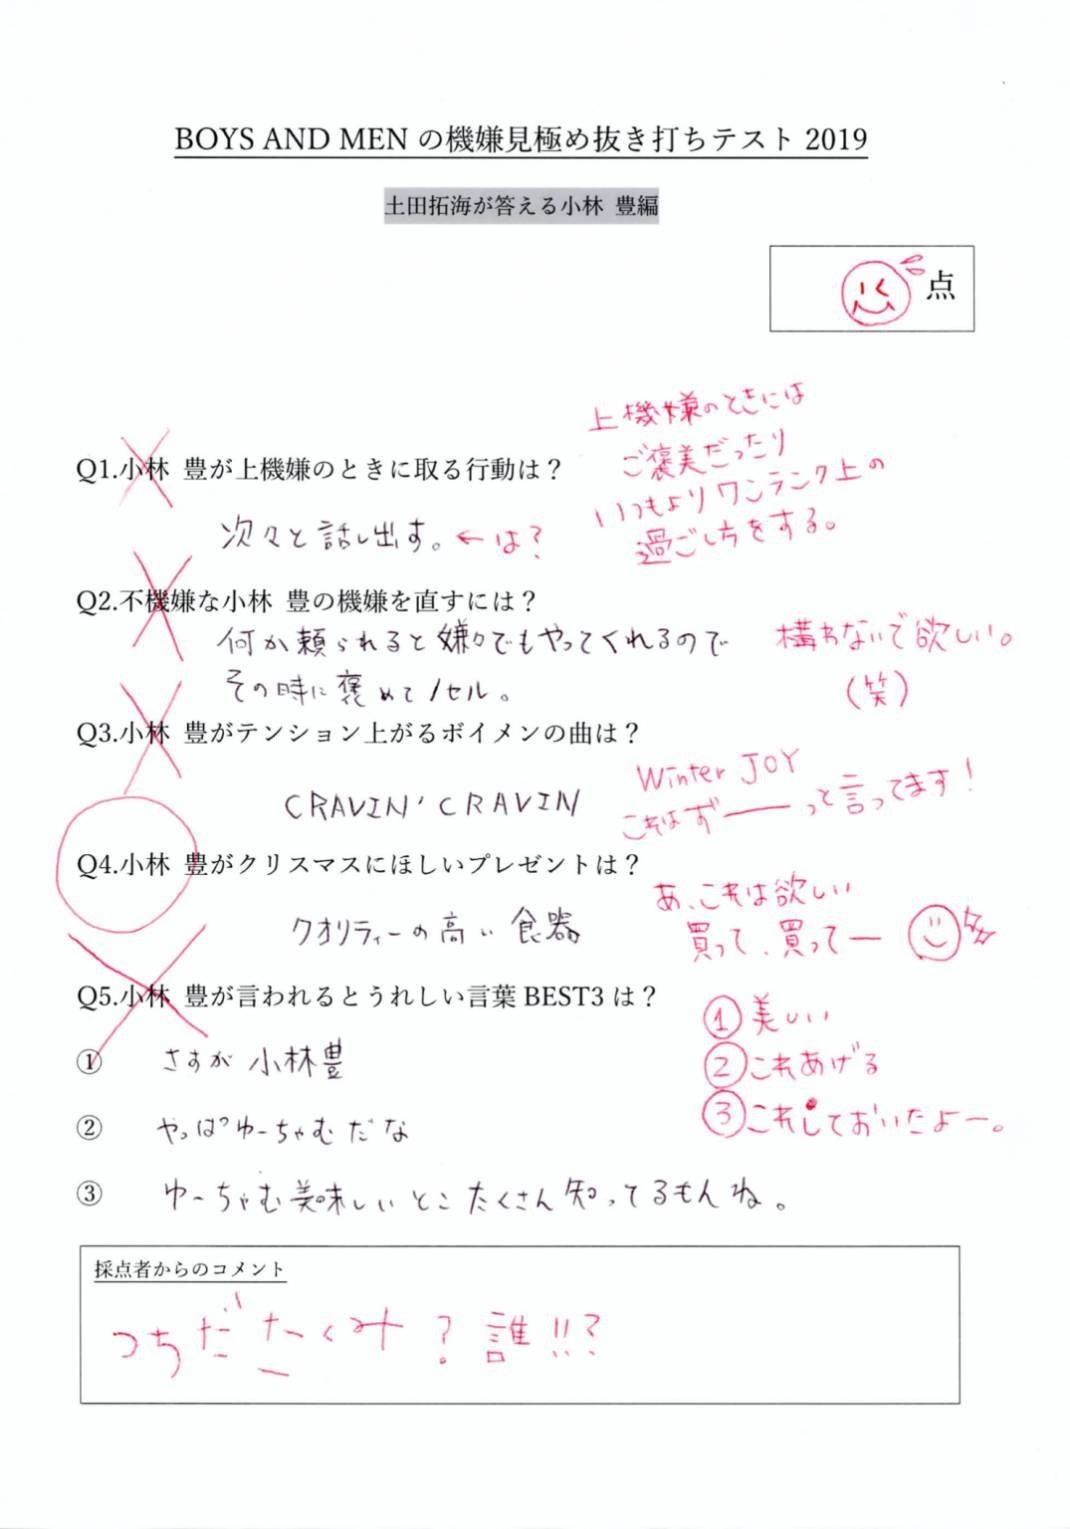 BOYS AND MEN の機嫌見極め抜き打ちテスト 2019
土田拓海が答える小林 豊編
点
Q1.小林 豊が上機嫌のときに取る行動は？
次々と話し出す。
←は？
上機嫌のときには
ご褒美だったり
いつもよりワンランク上の
過ごし方をする。
Q2.不機嫌な小林 豊の機嫌を直すには？
何か頼られると嫌々でもやってくれるので
その時に褒めてノセル。
構わないで欲しい。
(笑)
Q3.小林 豊がテンション上がるボイメンの曲は？
CRAVIN' CRAVIN
Winter JOY
これはずーーっと言ってます！
Q4.小林 豊がクリスマスにほしいプレゼントは？
クオリティーの高い食器
あ、これは欲しい
買って、買ってー
Q5.小林 豊が言われるとうれしい言葉 BEST3 は？
① さすが 小林豊
② やっぱゆーちゃむだな
③ ゆーちゃむ美味しいとこたくさん知ってるもんね。
① 美しい
② これあげる
③ これしておいたよー。
採点者からのコメント
つちだたくみ？誰!!?